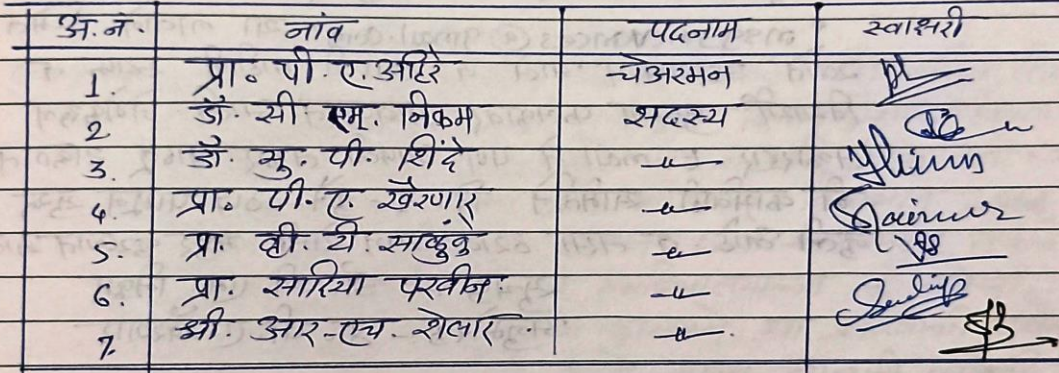 अ. नं. नांव पदनाम स्वाक्षरी
1. प्रा. पी. ए. अहिरे चेअरमन
2 डॉ. सी एम. निकम सदस्य
3. डॉ. यु. पी. शिंदे -"-
4. प्रा. पी. ए. खैरणार -"-
5. प्रा. व्ही. टी. साळुंके -"-
6. प्रा. सादिया परवीन. -"-
7. श्री आर. एच. शेलार. -"-